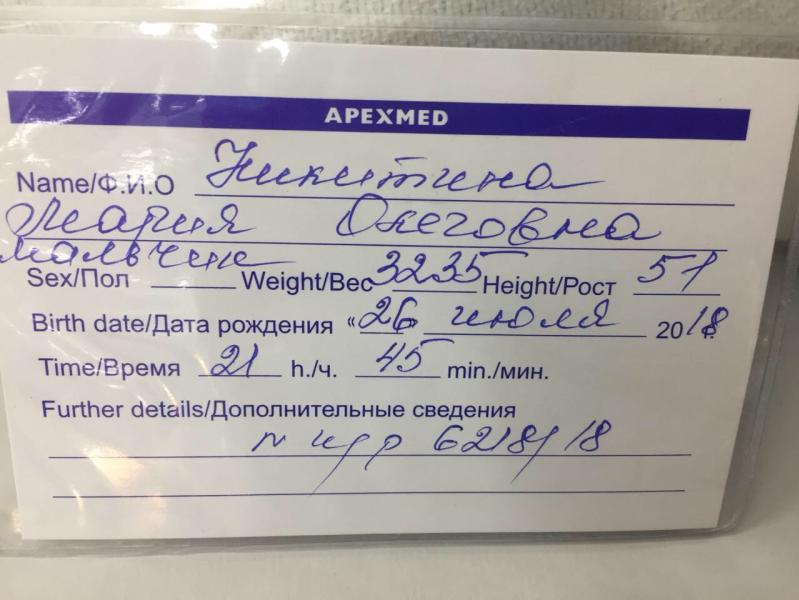 APEXMED
Name/Ф.И.О Никитина
Мария Олеговна
мальчик
Sex/Пол Weight/Вес 3235 Height/Рост 51
Birth date/Дата рождения «26 июля 2018г.
Time/Время 21 h./ч. 45 min./мин.
Further details/Дополнительные сведения
N и/р 6218/18